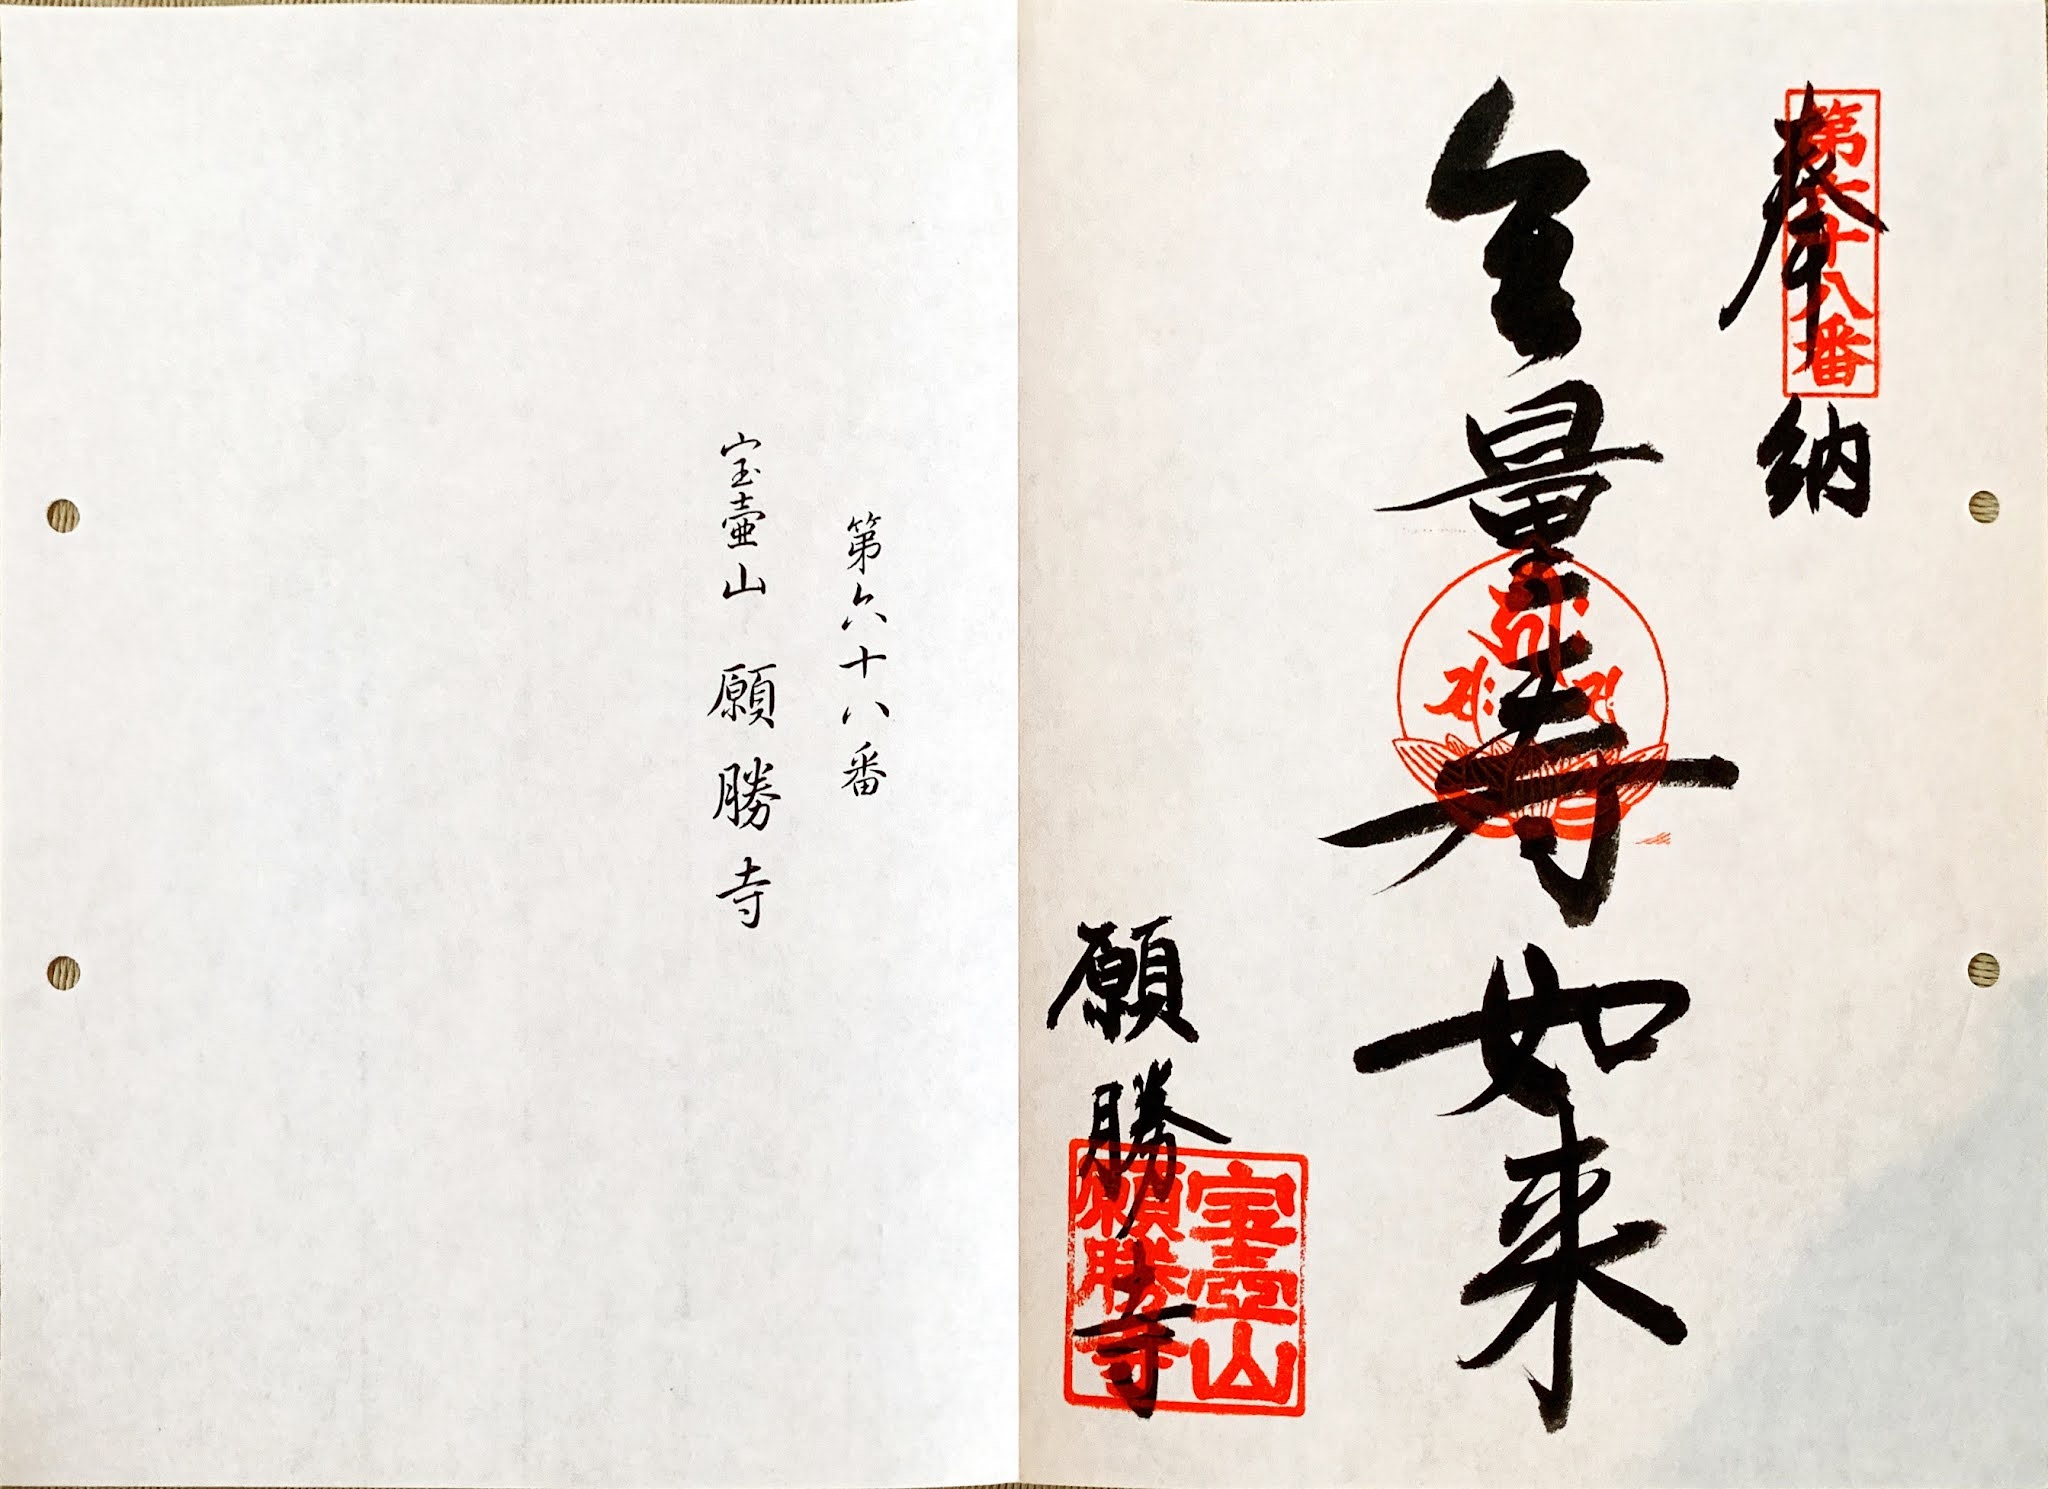 第六十八番
奉納
無量寿如来
願勝寺
宝壺山
願勝寺
第六十八番
宝壷山 願勝寺